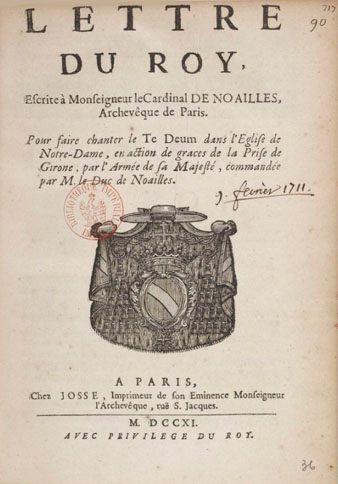 217
90
LETTRE
DU ROY,
Escrite à Monseigneur le Cardinal DE NOAILLES,
Archevêque de Paris.
Pour faire chanter le Te Deum dans l'Eglise de
Notre-Dame, en action de graces de la Prise de
Girone, par l'Armée de sa Majesté, commandée
par M. le Duc de Noailles.
9. fevrier 1711.
A PARIS,
Chez JOSSE, Imprimeur de son Eminence Monseigneur
l'Archevêque, ruë S. Jacques.
M. DCCXI.
AVEC PRIVILEGE DU ROY.
36